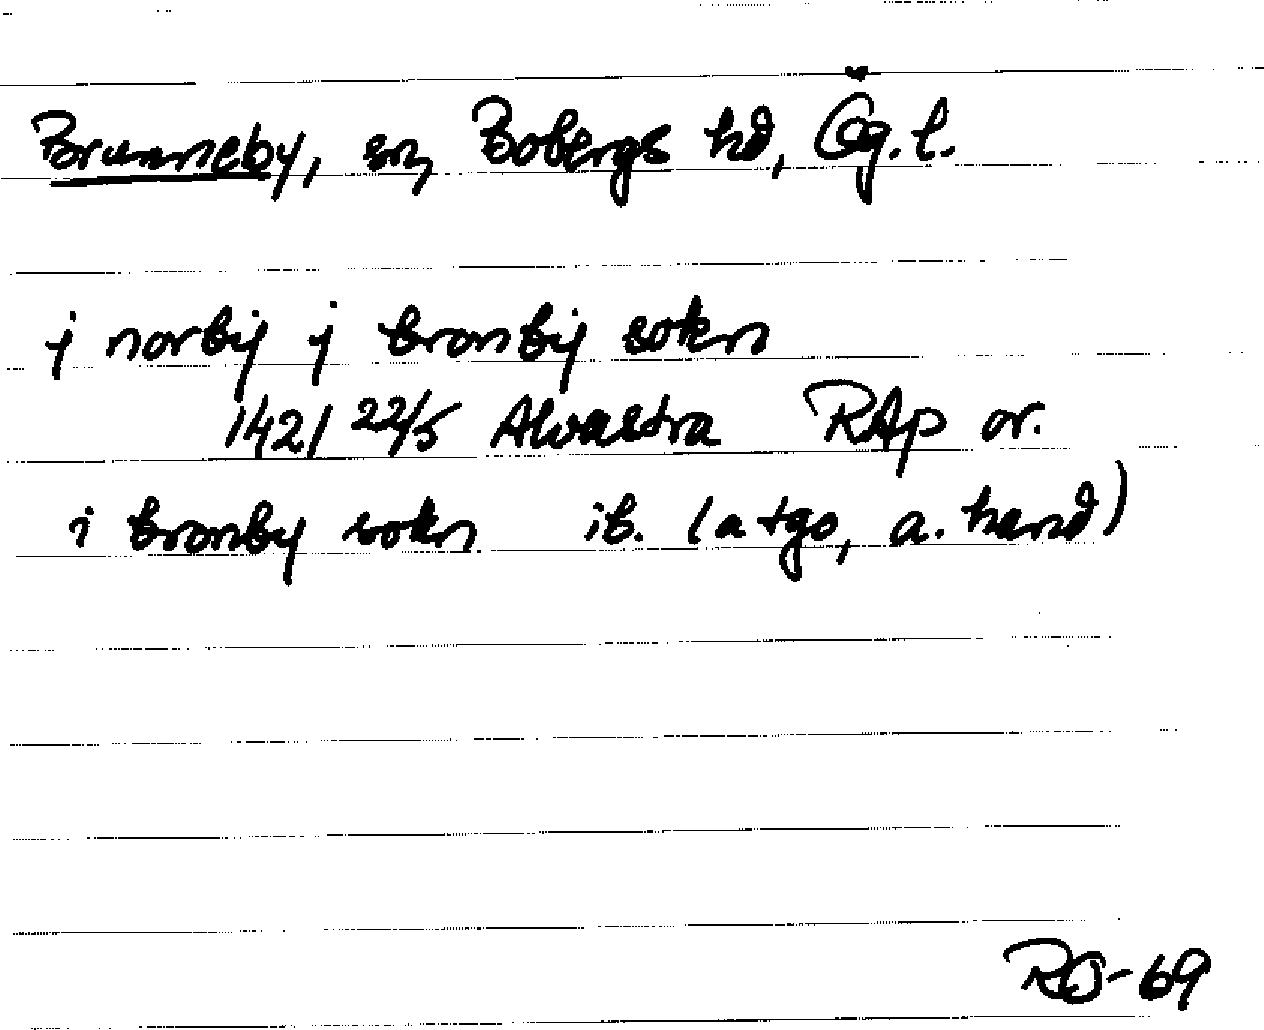 Brunneby, sn, Bobergs hd, Ög.l.
j norbij j bronbij sokn
1421 22/5 Alvastra RAp or.
i bronby sokn ib. (atgo, a. hand)
RO-69